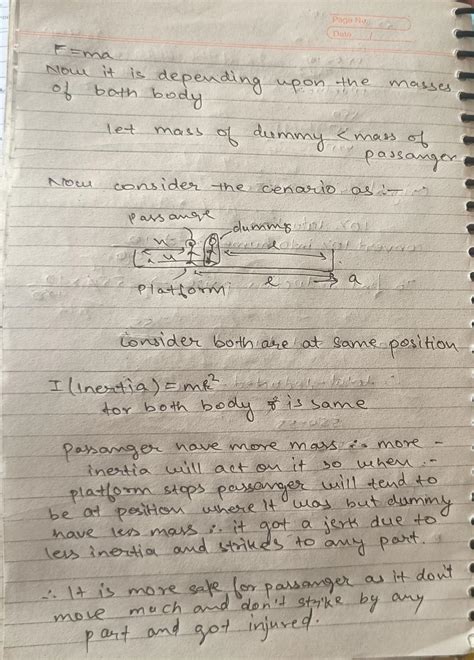 Page No.
Date
F=ma
Now it is depending upon the masses
of both body
let mass of dummy < mass of
passanger
Now consider the cenario as :-
passange
dummy
u
l
u
Platform
l
a
Consider both are at same position
I (Inertia) = mr²
for both body r is same
Passanger have more mass ∴ more -
inertia will act on it so when :-
platform stops passenger will tend to
be at position where it was but dummy
have less mass ∴ it got a jerk due to
less inertia and strikes to any part.
∴ It is more safe for passanger as it don't
move much and don't strike by any
part and got injured.